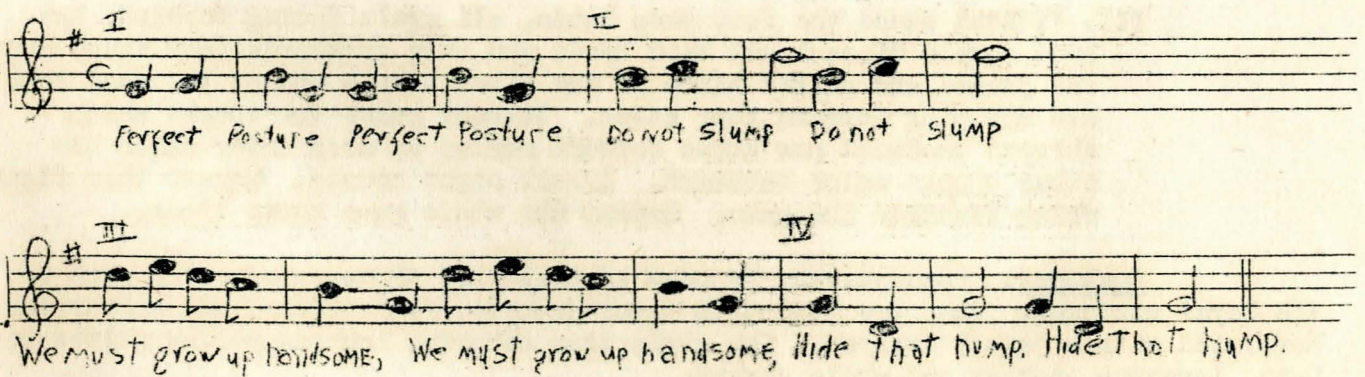 I II
Perfect Posture Perfect Posture Do not Slump Do not Slump
III IV
We must grow up handsome, We must grow up handsome, Hide that hump. Hide That hump.